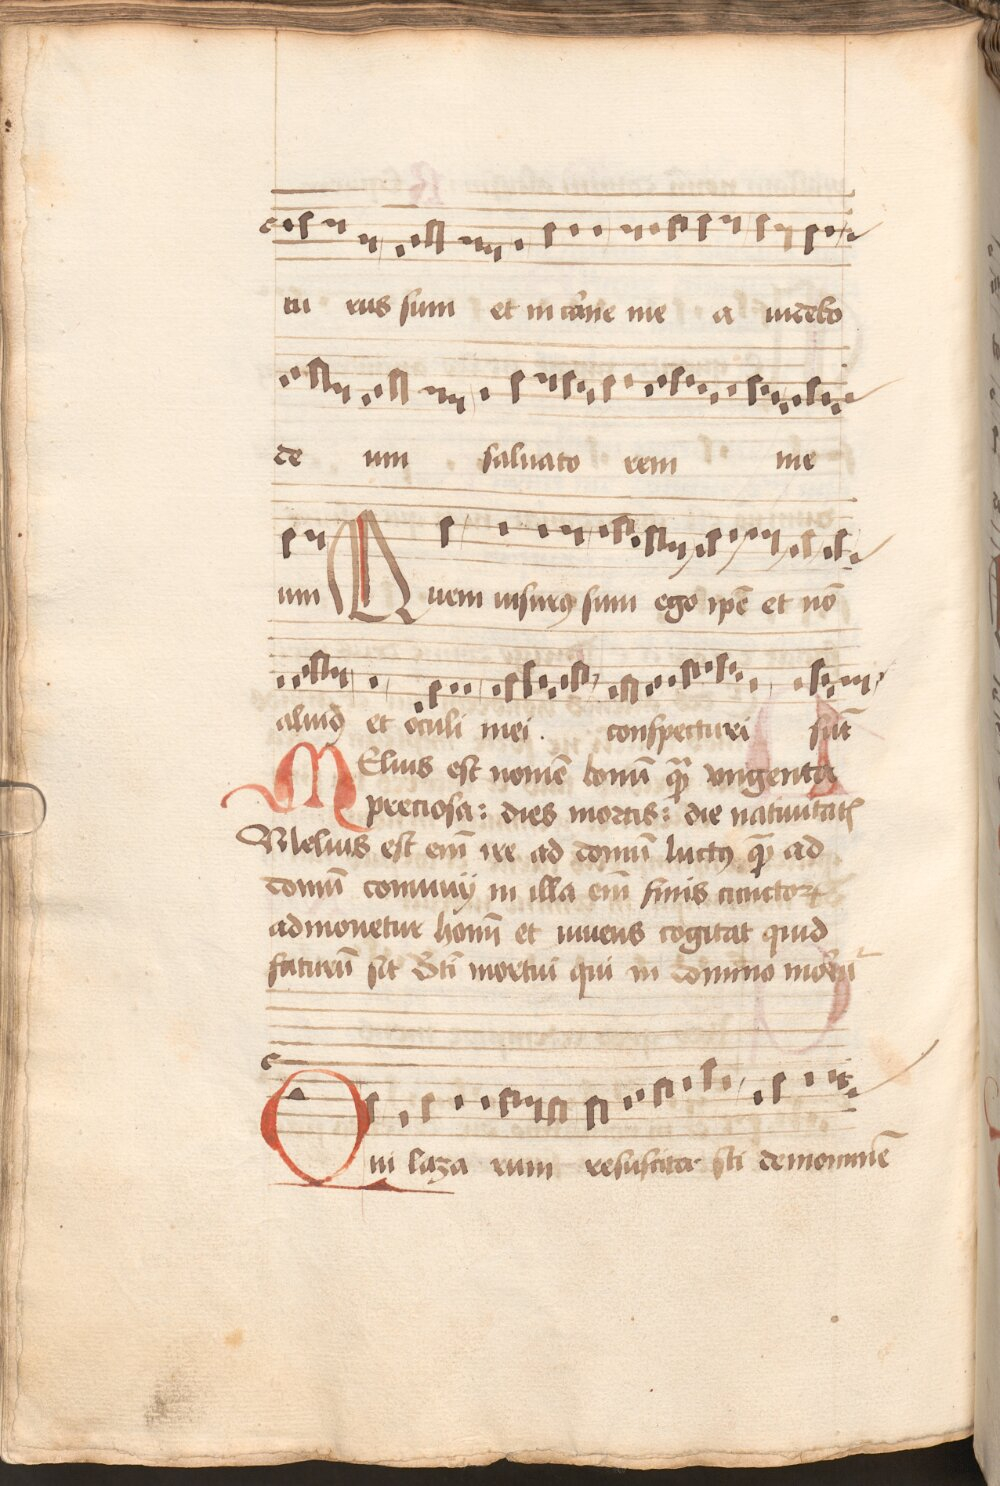 tu rus sum et in carne me a videbo
de um saluato rem me
um Quem visurꝯ sum ego ip̄e et nō
aliud et oculi mei . conspecturi sūt
MElius est nomē bonū qͣ̄ vngenta
preciosa: dies mortis: die natiuitatꝭ
Melius est eni̅ ire ad domū luctꝯ qͣ̄ ad
domū conuiuij in illa eni̅ finis cunctoꝝ
admonetur homī et viuens cogitat quid
futurū sit Bt̄i mortui qui in domino moriūtᷣ
Qui laza rum resuscitas